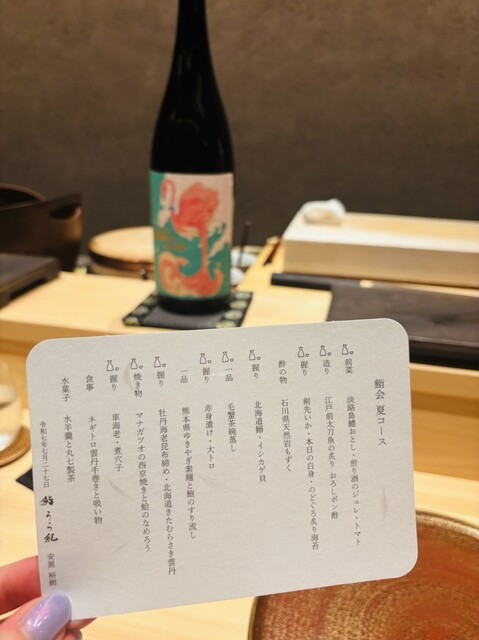 鮨会 夏コース
前菜 淡路島鱧おとし・煎り酒のジュレ・トマト
造り 江戸前太刀魚の炙り おろしポン酢
握り 剣先いか・本日の白身・のどぐろ炙り海苔
酢の物 石川県天然岩もずく
握り 北海道鰯・イシカゲ貝
一品 毛蟹茶碗蒸し
握り 赤身漬け・大トロ
一品 熊本県ゆきやぎ素麺と鮑のすり流し
握り 牡丹海老昆布締め・北海道きたむらさき雲丹
焼き物 マナガツオの西京焼きと鮎のなめろう
握り 車海老・煮穴子
食事 ネギトロ雲丹手巻きと吸い物
水菓子 水羊羹と丸七製茶
令和七年七月二十七日 鮨 うら紀 安黒 裕樹